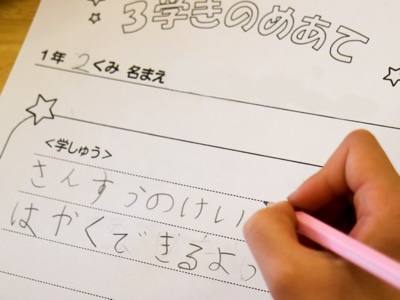 3学きのめあて
1年 2くみ 名まえ
<学しゅう>
さんすうのけい
はやくできるよう